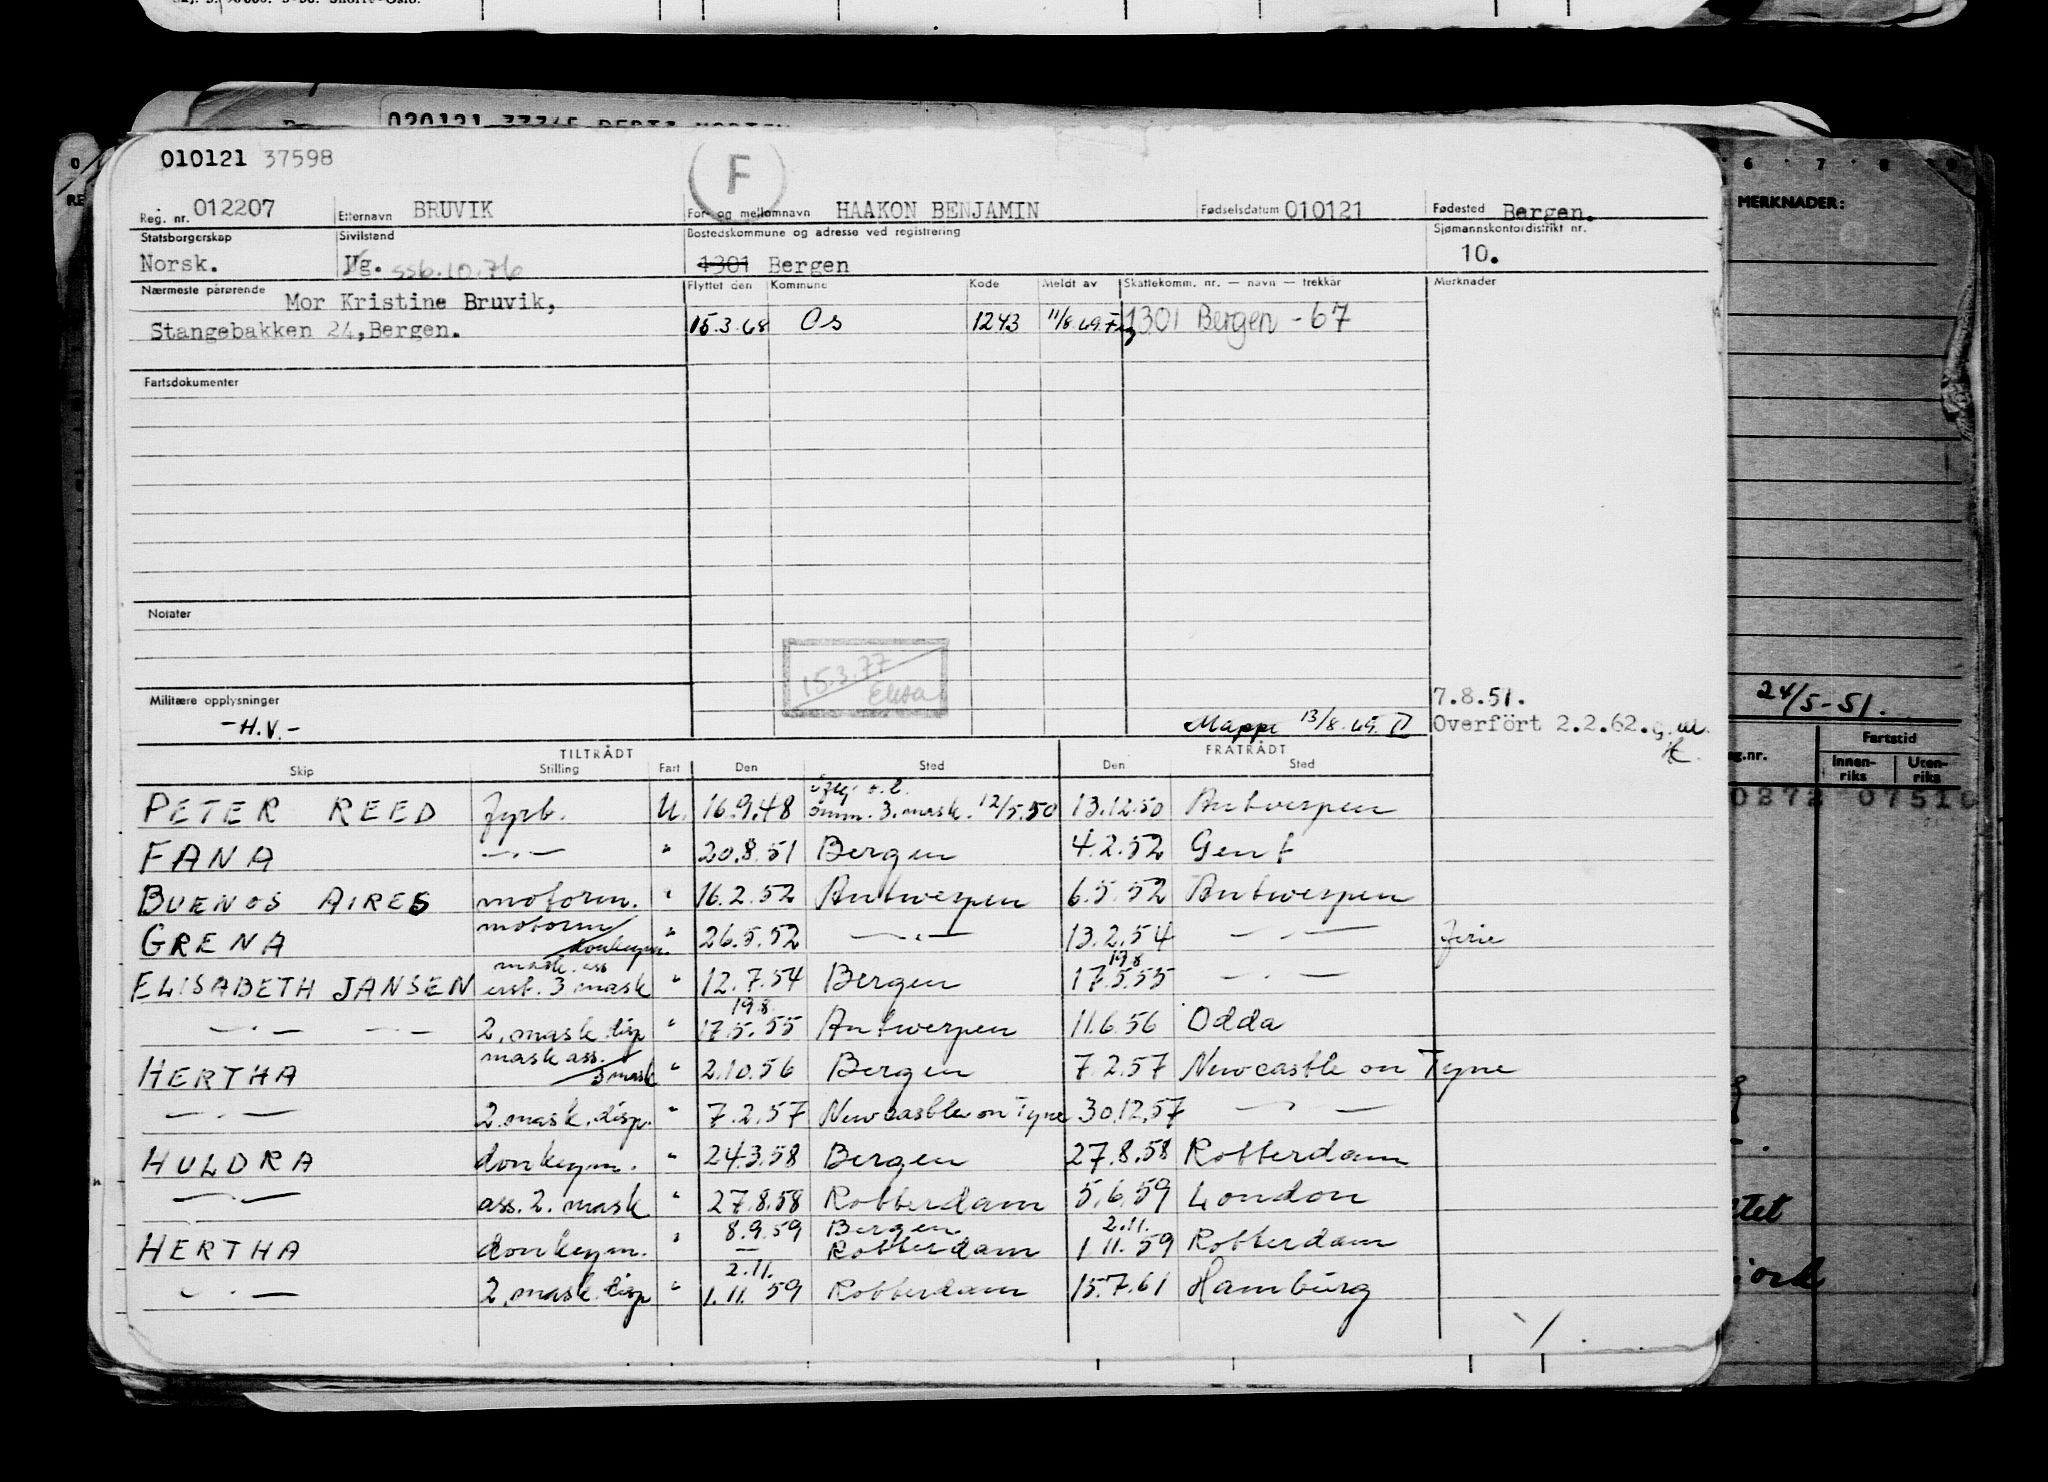 010121 37598
F
Reg. nr. 012207 Etternavn BRUVIK For- og mellomnavn HAAKON BENJAMIN Fødselsdatum 010121 Fødested Bergen.
Statsborgerskap Sivilstand Bostedskommune og adresse ved registrering Sjømannskontordistrikt nr.
Norsk. Ug. ssb.10.76 1301 Bergen 10.
Nærmeste pårørende Mor Kristine Bruvik, Flyttet den Kommune Kode Meldt av Skattekomm. nr. — navn — trekkår Merknader
Stangebakken 24, Bergen. 15.3.68 Os 1243 11/8.69. 1301 Bergen -67
Fartsdokumenter
Notater
15.3.77
Militære opplysninger 7.8.51.
-H.V.- Mappe 13/8.69. Overfört 2.2.62.
TILTRÅDT FRATRÅDT
Skip Stilling Fart Den Sted Den Sted
PETER REED fyrb. U. 16.9.48 omm. 3. mask. 12/5.50 13.12.50 Antwerpen
FANA —.— " 20.8.51 Bergen 4.2.52 Gent
BUENOS AIRES motorm. " 16.2.52 Antwerpen 6.5.52 Antwerpen
GRENA motorm/donkeym. " 26.5.52 —.— 13.2.54 —.— ferie
mask. ass 19.8
ELISABETH JANSEN 3 mask " 12.7.54 Bergen 17.5.55 —.—
19.8.
—.— —.— 2. mask. disp " 17.5.55 Antwerpen 11.6.56 Odda
HERTHA mask ass./3 mask " 2.10.56 Bergen 7.2.57 Newcastle on Tyne
—.— 2. mask. disp. " 7.2.57 Newcastle on Tyne 30.12.57 —.—
HULDRA donkeym. " 24.3.58 Bergen 27.8.58 Rotterdam
—.— ass. 2. mask " 27.8.58 Rotterdam 5.6.59 London
8.9.59 Bergen 2.11.
HERTHA donkeym. " — Rotterdam 1.11.59 Rotterdam
2.11.
—.— 2. mask. disp " 1.11.59 Rotterdam 15.7.61 Hamburg
6 7 8 9
MERKNADER:
24/5-51.
Fartstid
Innen-riks Uten-riks